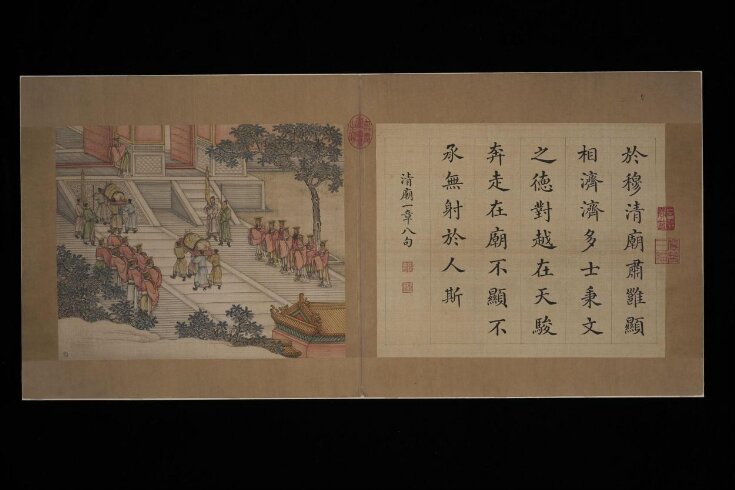 於穆清廟肅雝顯
相濟濟多士秉文
之德對越在天駿
奔走在廟不顯不
承無射於人斯
清廟一章八句